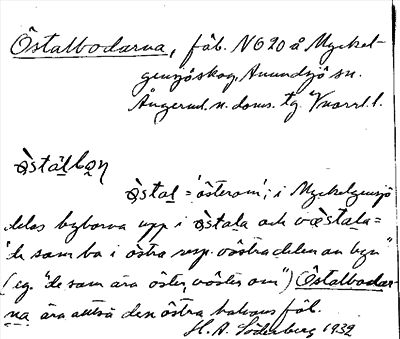 Östalbodarna, fäb. N 620 å Myckel-
gensjöskog, Anundsjö sn.
Ångerml. n. doms. tg. Vnorrl. l.
östalboɳ
östal = 'österom'; i Myckelgensjö
delas byborna upp i östala och västala =
'de som bo i östra resp. västra delen av byn'
(eg. "de som äro öster, väster om") Östalbodar-
na äro alltså den östra halvans fäb.
H. A. Söderberg 1932